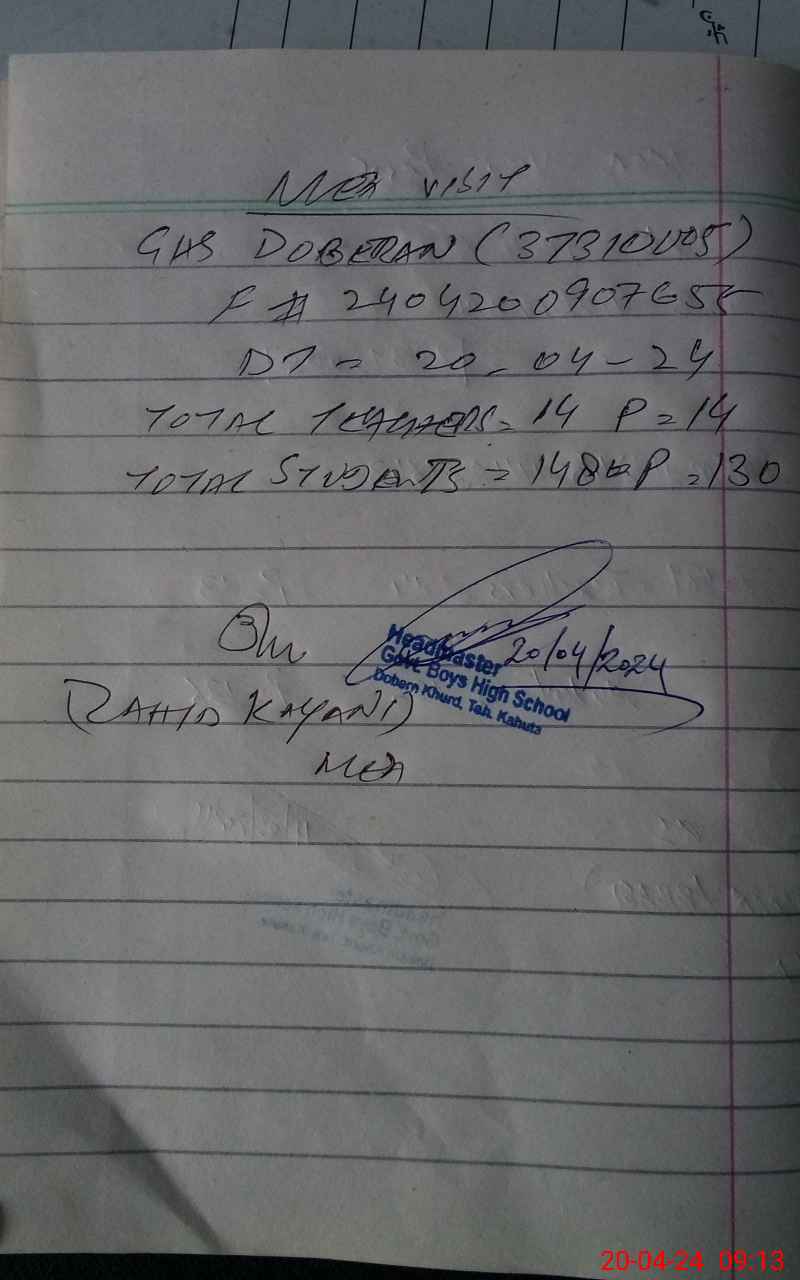 MEA VISIT
GHS DOBERAN (37310005)
F # 2404200907655
DT = 20-04-24
TOTAL TEACHERS = 14 P = 14
TOTAL STUDENTS = 148 P = 130
20/04/2024
Headmaster
Govt. Boys High School
Dobern Khurd, Teh. Kahuta
(ZAHID KAYANI)
MEA
20-04-24 09:13